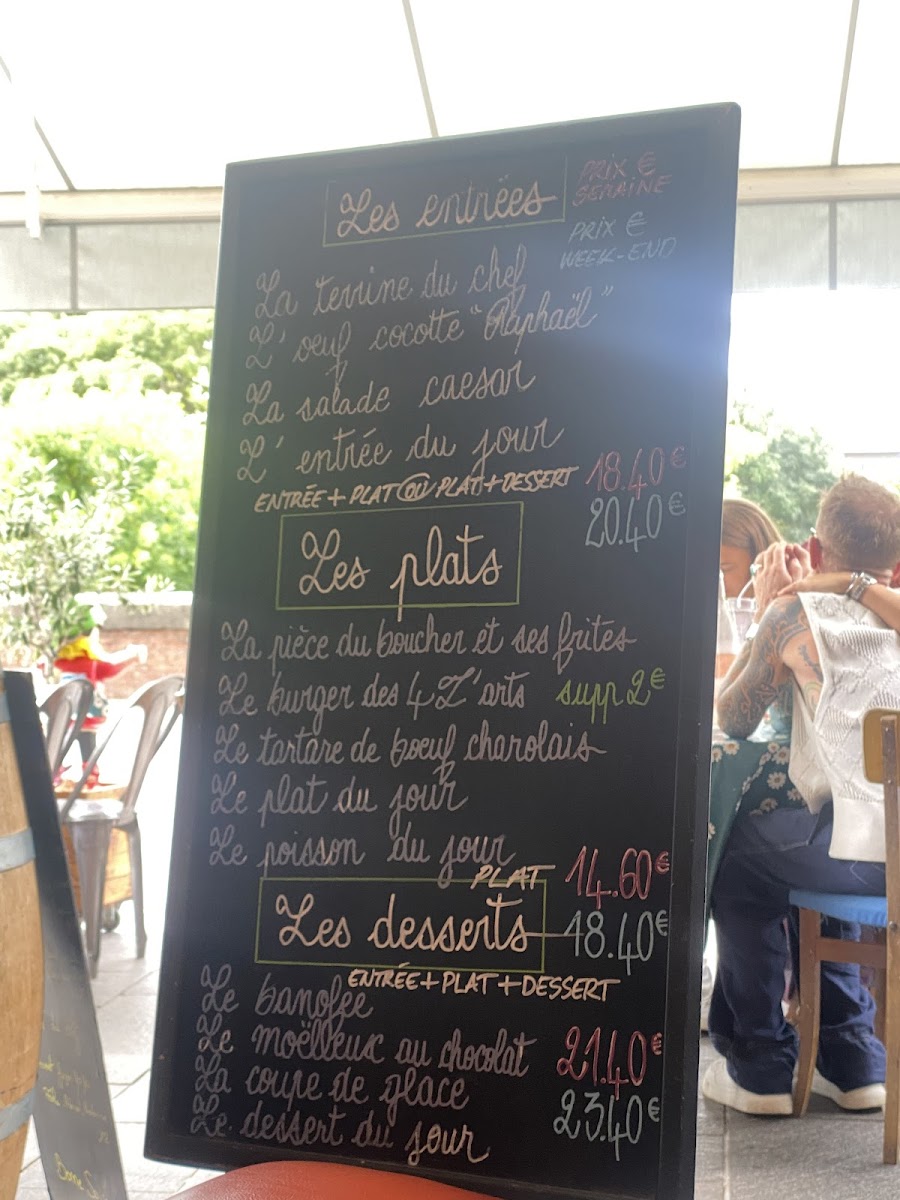 Les entrées
PRIX €
SEMAINE
PRIX €
WEEK-END
La terrine du chef
L'oeuf cocotte "Raphaël"
La salade caesar
L'entrée du jour
ENTRÉE + PLAT OU PLAT + DESSERT
18.40€
20.40€
Les plats
La pièce du boucher et ses frites
Le burger des 4 Z'arts supp 2€
Le tartare de bœuf charolais
Le plat du jour
Le poisson du jour
PLAT 14.60€
18.40€
Les desserts
ENTRÉE + PLAT + DESSERT
Le banofee
Le moëlleux au chocolat
21.40€
La coupe de glace
23.40€
Le dessert du jour